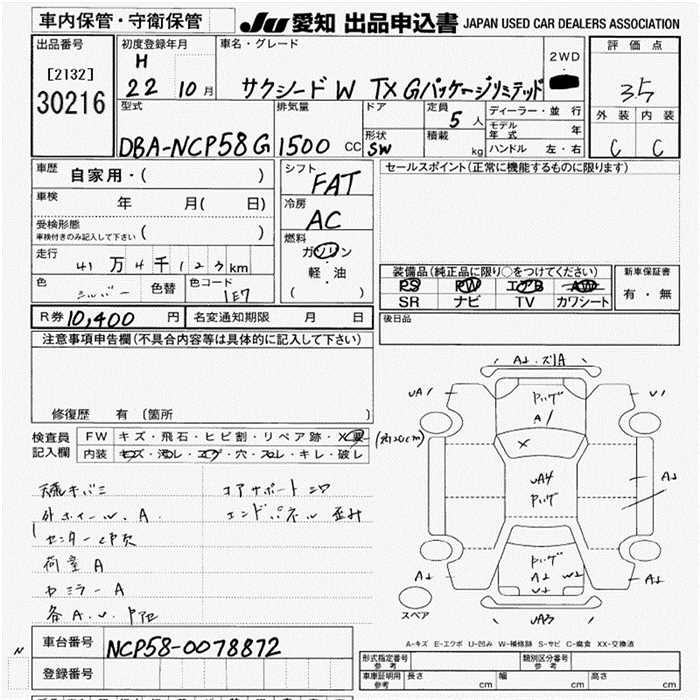 車内保管・守衛保管
JU 愛知 出品申込書 JAPAN USED CAR DEALERS ASSOCIATION
出品番号
[2132]
30216
初度登録年月
H
22 10月
車名・グレード
サクシード W TX Gパッケージリミテッド
2WD
評価点
3.5
外装 内装
C C
型式
DBA-NCP58G
排気量
1500 CC
ドア
形状
SW
定員
5人
積載
kg
ディーラー・並行
モデル年式 年
ハンドル 左・右
車歴
自家用・( )
車検
年 月( 日)
受検形態
車検付きのみ記入して下さい
( )
走行
41万4千123km
色
シルバー
色替
色コード
1E7
シフト
FAT
冷房
AC
燃料
ガソリン
・
軽・油
( )
セールスポイント(正常に機能するものに限ります)
装備品(純正品に限り○をつけてください)
PS PW エアB AW
SR ナビ TV カワシート
新車保証書
有・無
R券 10,400 円
名変通知期限 月 日
後日品
注意事項申告欄(不具合内容等は具体的に記入して下さい)
修復歴 有(箇所 )
検査員
記入欄
FW キズ・飛石・ヒビ割・リペア跡・X要
内装 キズ・汚レ・コゲ・穴・スレ・キレ・破レ
外ホイール. A.
荷室 A
コアサポート
エンドパネル 歪み
A1
UA1
U1
X
UA4
UA3
W2
スペア
A-キズ E-エクボ U-凹み W-補修跡 S-サビ C-腐食 XX-交換済
車台番号
NCP58-0078872
登録番号
形式指定番号
参考
類別区分番号
参考
車庫証明用
参考
長さ cm
幅 cm
高さ cm